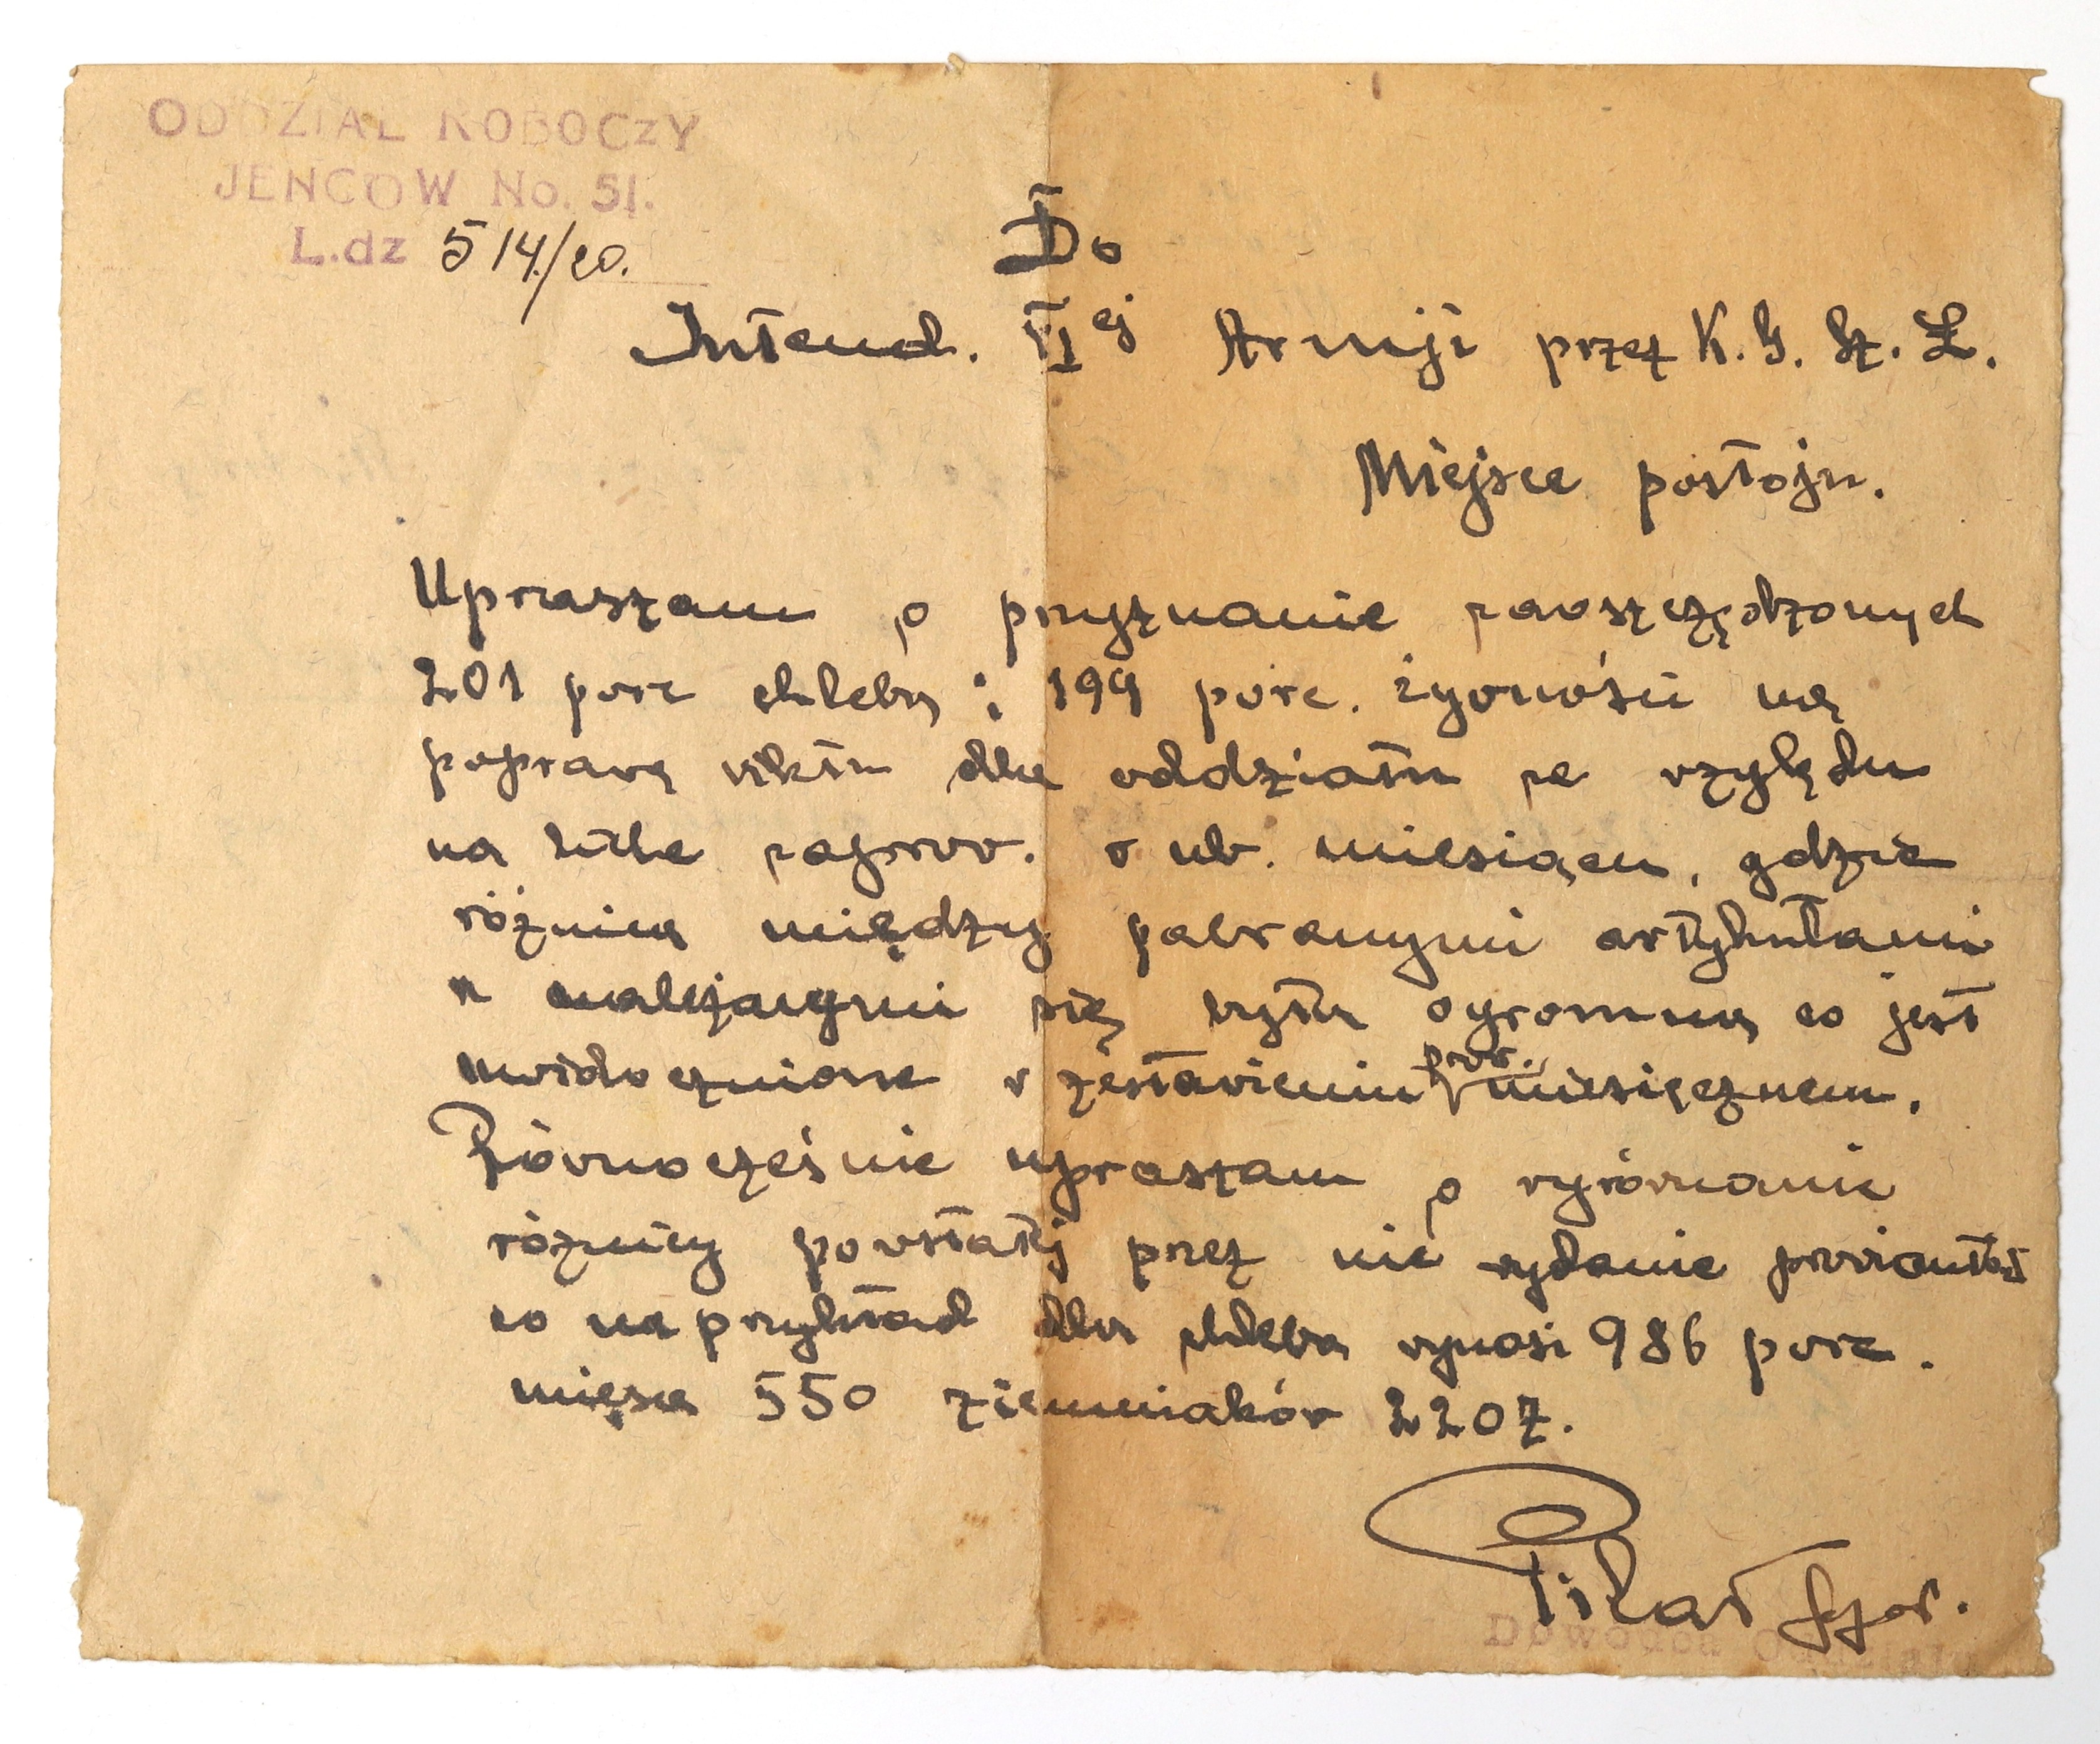 ODDZIAŁ ROBOCZY
JENCOW No. 51.
L.dz 514/20.
Do
Intend. VI ej Armji przez K. G. Sz. L.
Miejsce postoju.
Upraszam o przyznanie zaoszczędzonych
201 porc chleba i 199 porc. żywności na
poprawę wiktu dla oddziału ze względu
na zaprow. w ub. miesiącu, gdzie
różnica między pobranymi artykułami
a należącymi się była ogromna co jest
uwidocznione w zestawieniu prow. miesięcznem.
Równocześnie upraszam o wyrównanie
różnicy powstałej przez nie wydanie prowiantów
co na przykład dla chleba wynosi 986 porc.
mięsa 550 ziemniaków 2207.
Dowódca Oddziału